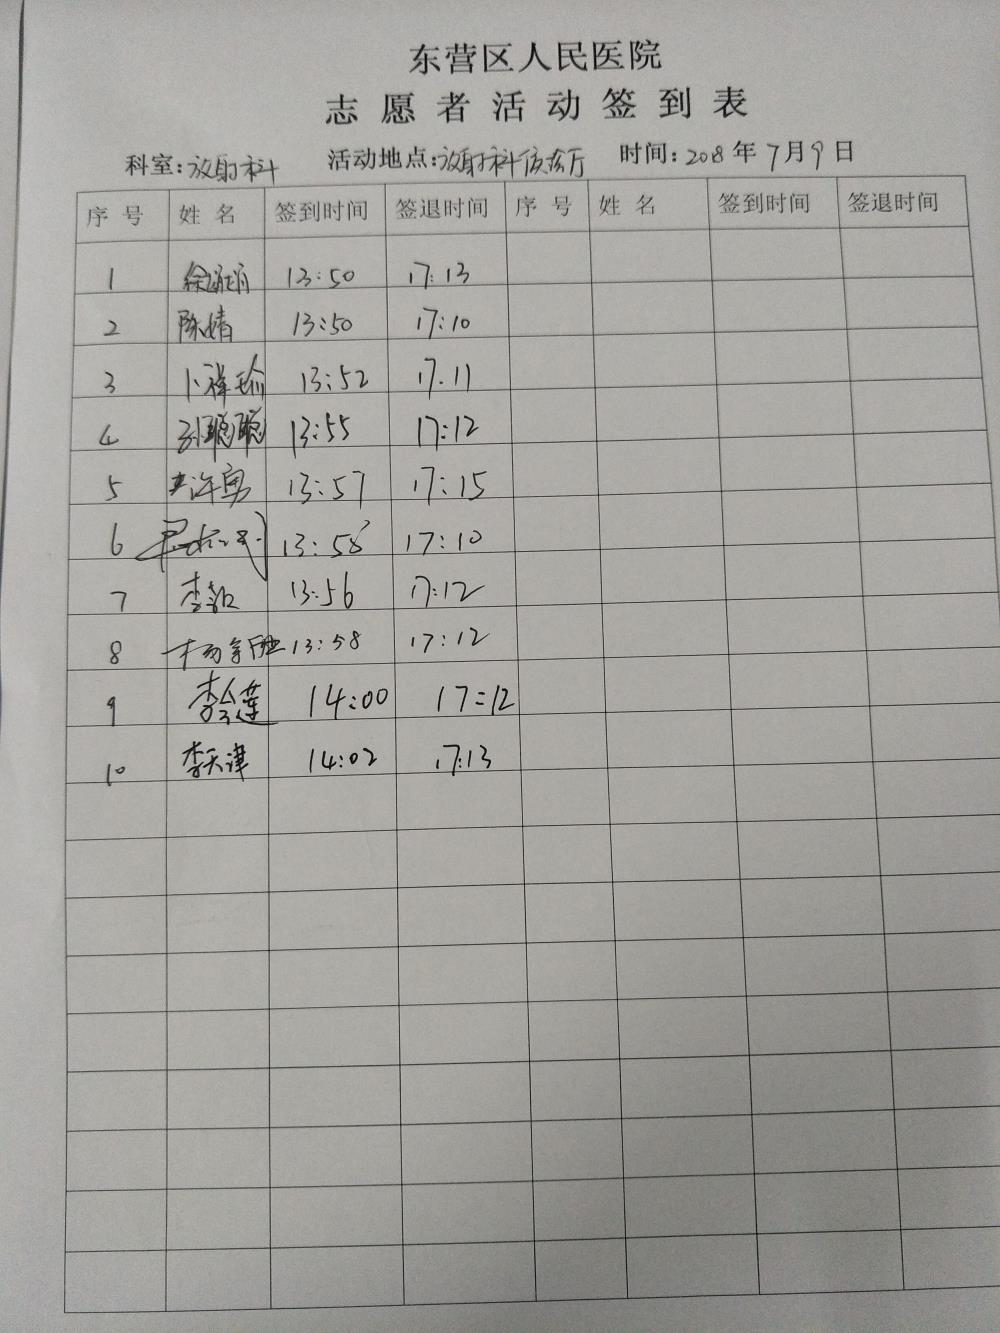 东营区人民医院
志愿者活动签到表
科室:放射科 活动地点:放射科候诊厅 时间:2018年7月9日
序号 姓名 签到时间 签退时间 序号 姓名 签到时间 签退时间
1 13:50 17:13
2 陈婧 13:50 17:10
3 卜祥瑜 13:52 17.11
4 孙聪聪 13:55 17:12
5 许勇 13:57 17:15
6 13:58 17:10
7 李 13:56 17:12
8 杨 13:58 17:12
9 李会莲 14:00 17:12
10 李天津 14:02 17:13